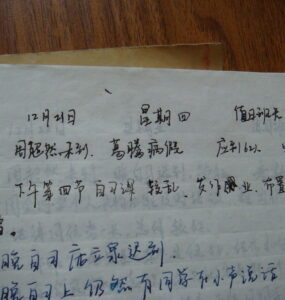 12月21日 星期四 值日班长
周超然未到. 葛腾病假 应到62.
下午第四节自习课 较乱. 发作业. 布置
晚自习 迟到.
晚自习上 仍然有同学在小声说话